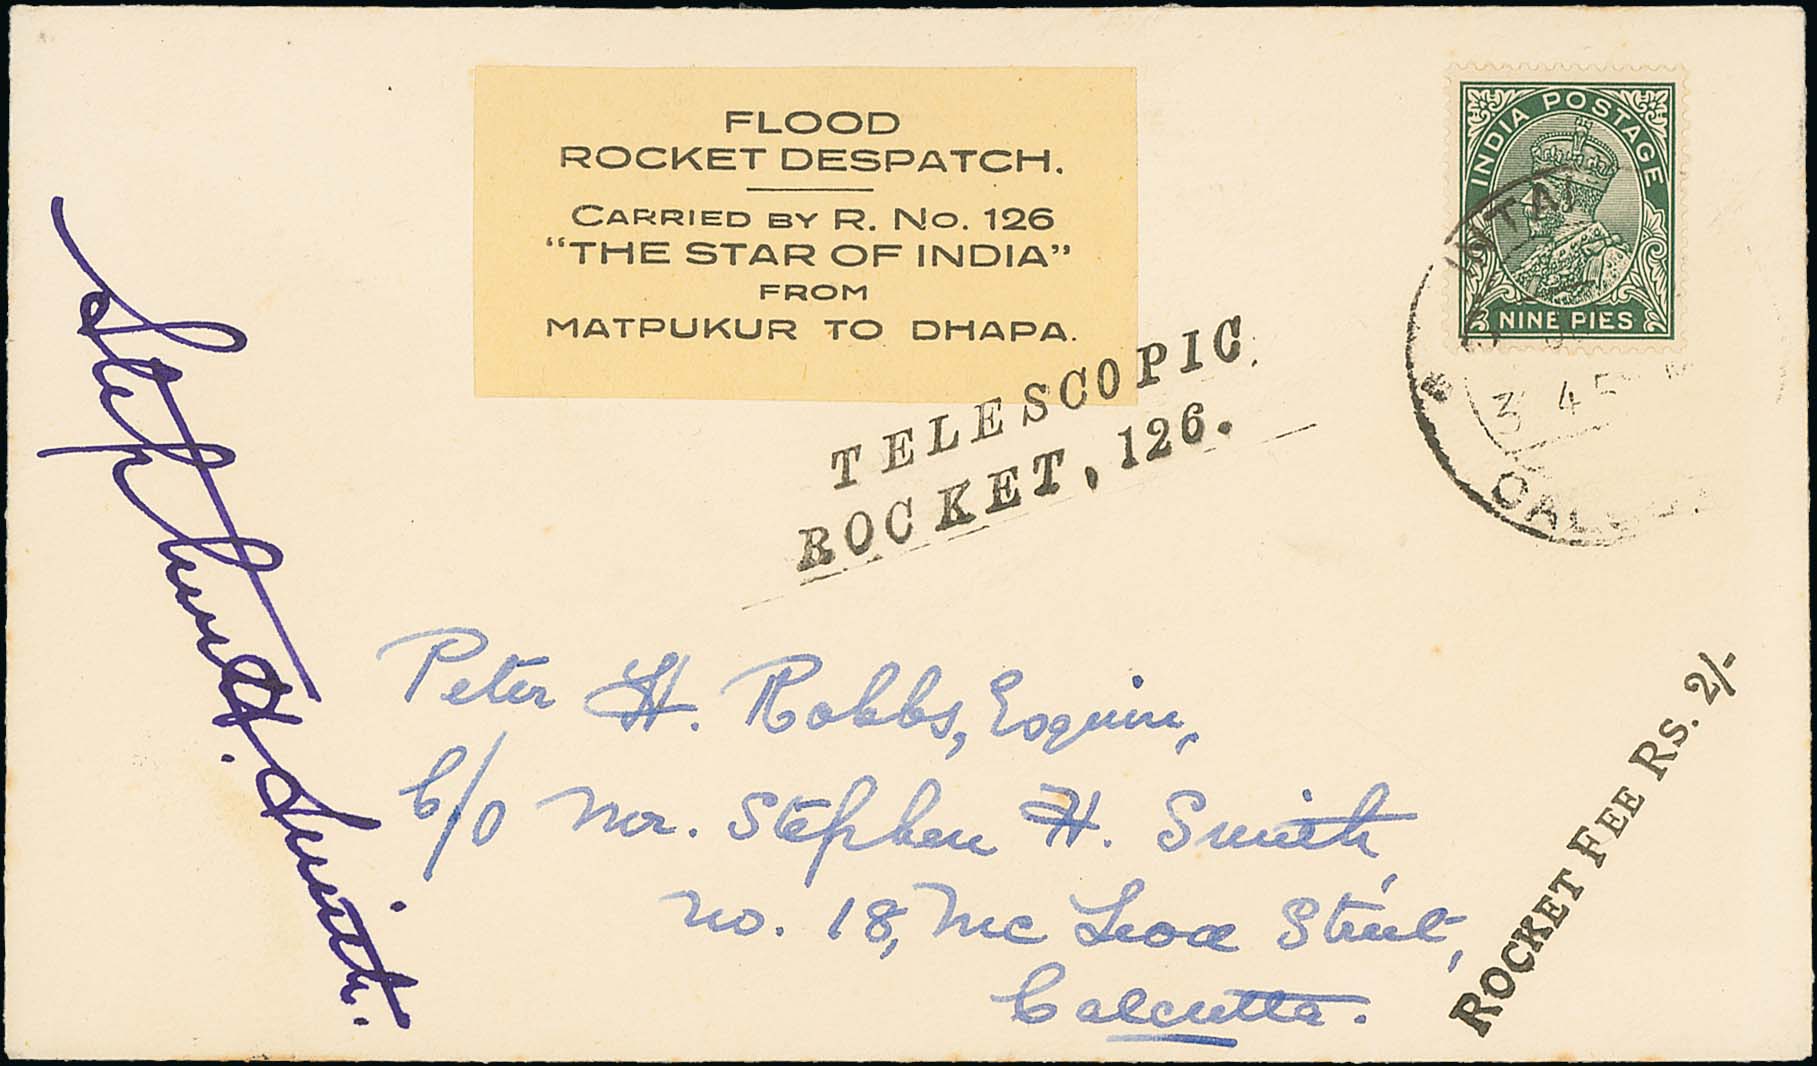 FLOOD
ROCKET DESPATCH.
CARRIED BY R. NO. 126
"THE STAR OF INDIA"
FROM
MATPUKUR TO DHAPA.
INDIA POSTAGE
NINE PIES
TELESCOPIC
ROCKET, 126.
Stephen H. Smith.
Peter H. Robbs, Esquire,
C/o Mr. Stephen H. Smith,
No. 18, Mc Leod Street,
Calcutta.
ROCKET FEE RS. 2/-